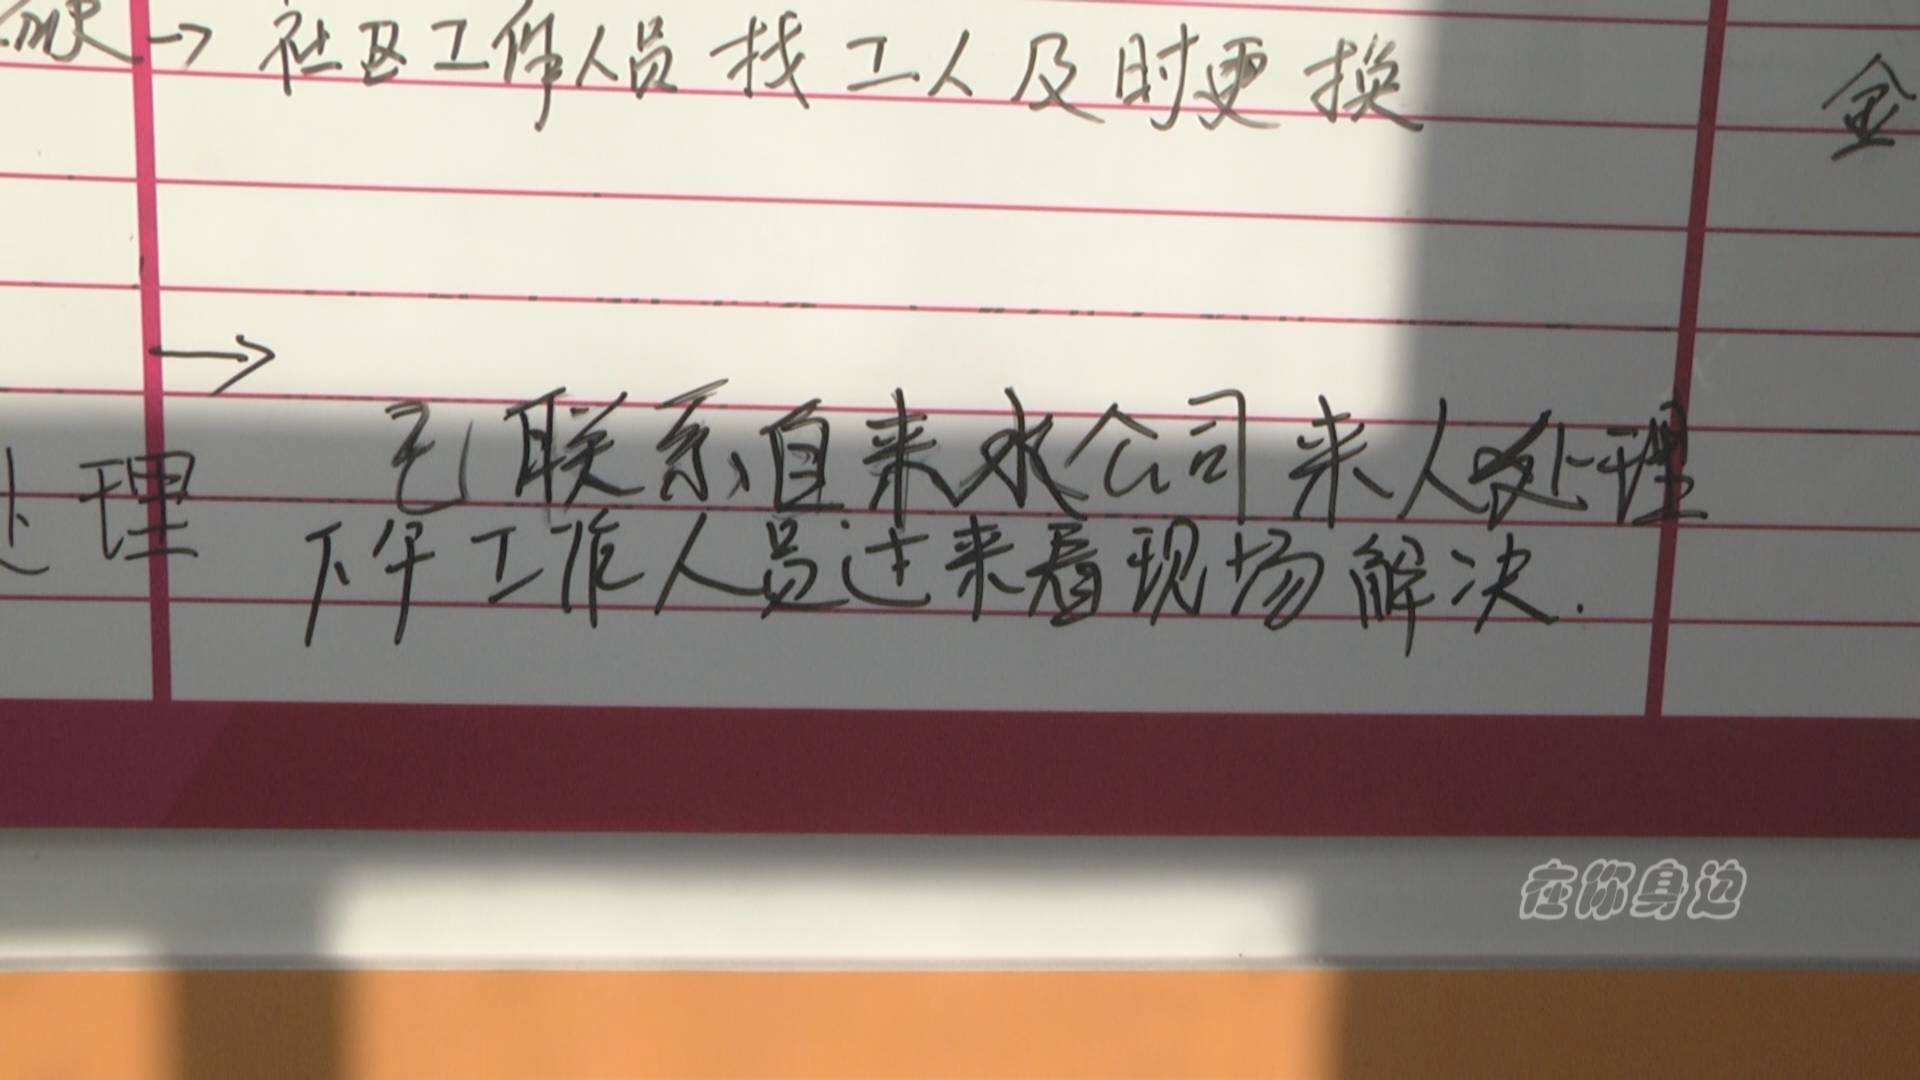 → 社区工作人员找工人及时更换
金
→
处理
已联系自来水公司来人处理
下午工作人员过来看现场解决.
在你身边